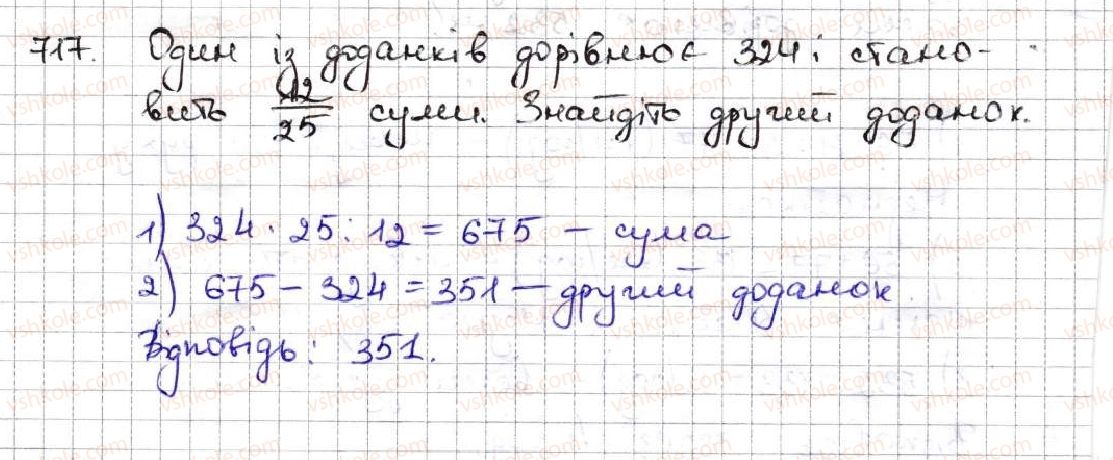 717. Один із доданків дорівнює 324 і стано-
вить 12/25 суми. Знайдіть другий доданок.
1) 324 · 25 : 12 = 675 – сума
2) 675 – 324 = 351 – другий доданок
Відповідь: 351.